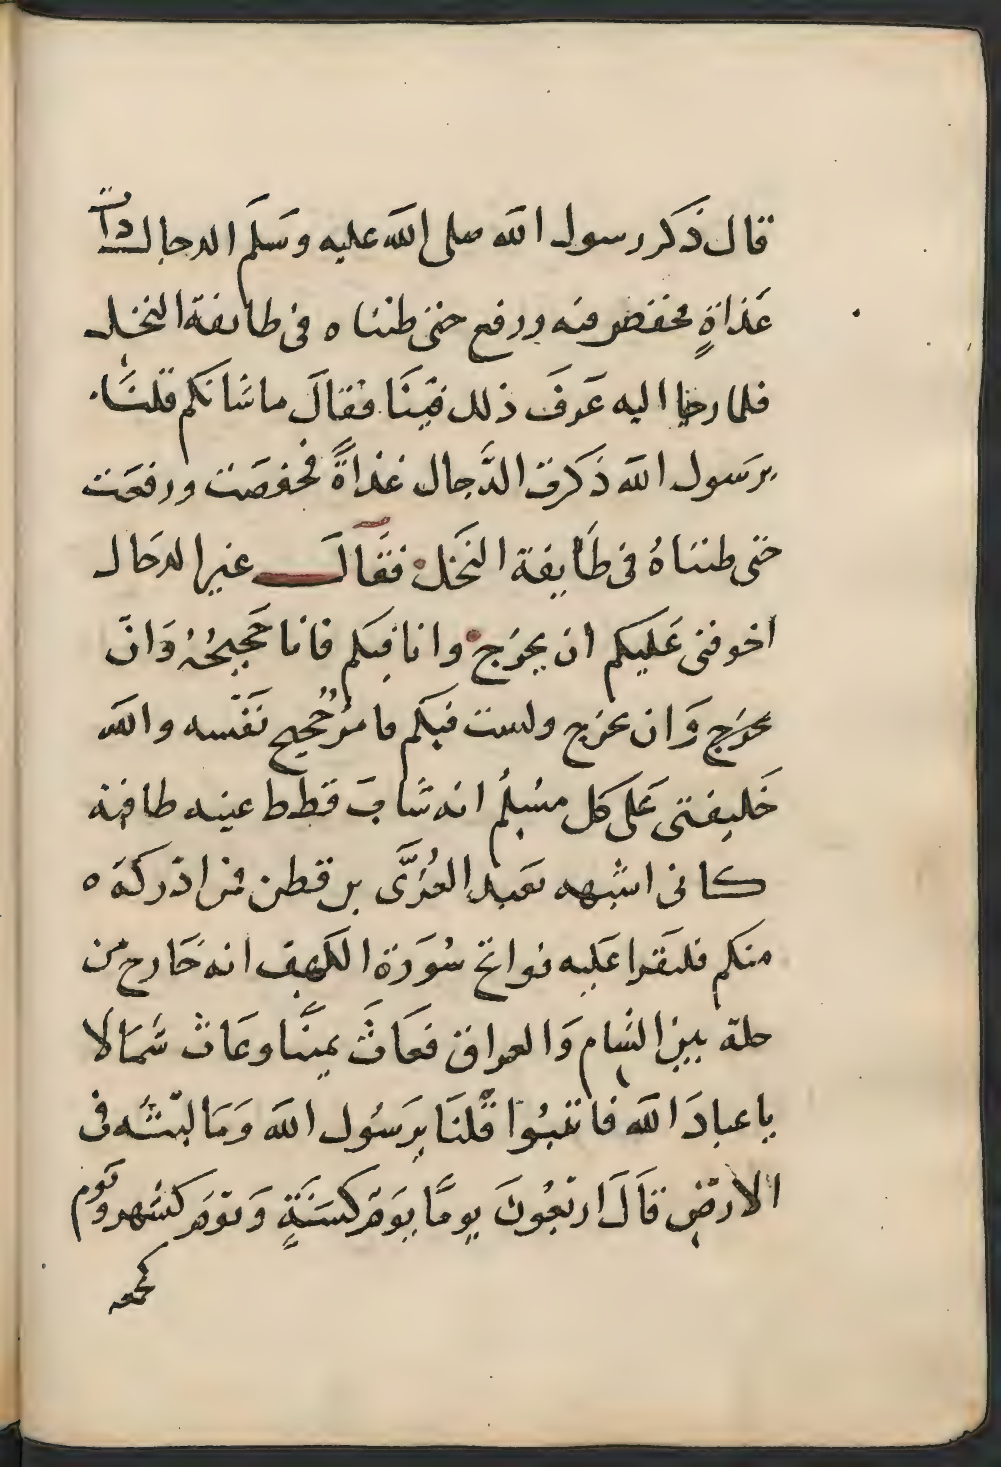 قال ذَكر رسول الله صلى الله عليه وسَلَّم الدجال ذات
غَداةٍ فخفض فيه ورفع حتى ظنناه في طائفة النخل
فلما رحنا اليه عَرفَ ذلك فيِنَا فقالَ ما شانكم قلنَا
يرَسول الله ذَكرت الدَّجال غداةً فخفضَت ورفعَت
حتى ظنناهُ في طَايفة النَخل فقَالَ غير الدجَال
اخوفنى عَليكم ان يخرَج وانا فيكم فانا حَجيجُهُ وَان
يخرَج وَان يخرج ولست فيكم فامرُؤٌ حجيج نَفْسه والله
خَليفتى عَلى كل مسُلِمُ انه شابَ قطط عينه طافئة
كانى اشبهه بعَبد العُزَّى بن قطن فمن ادركَه
منكم فليَقرا عَليه فواتح سُورَة الكَهف انه خَارج من
حلة بين الشام وَالعراق فعَاثَ يميناً وعَاث شمَالا
ياعبادَ الله فاثبتُوا قُلنَا يرَسُول الله وَمَا لبْثُه فى
الارضِ قَالَ اربَعُونَ يومًا يوَم كسَنَةٍ وَيوَم كشهر ويَوم
كجمعه